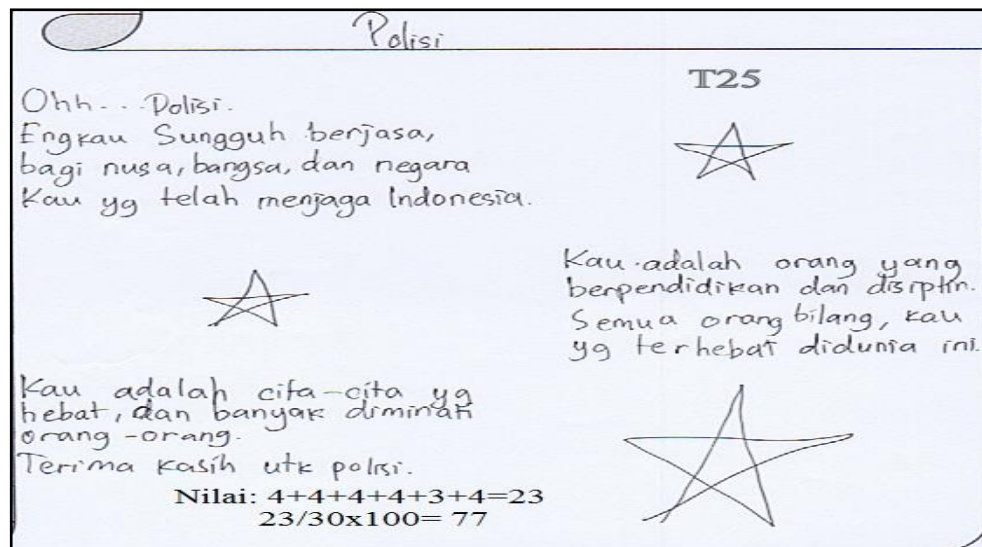 Polisi
T25
Ohh... Polisi.
Engkau Sungguh berjasa,
bagi nusa, bangsa, dan negara
Kau yg telah menjaga Indonesia.
Kau adalah orang yang
berpendidikan dan disiplin.
Semua orang bilang, kau
yg terhebat didunia ini.
Kau adalah cita-cita yg
hebat, dan banyak diminati
orang-orang.
Terima kasih utk polisi.
Nilai: 4+4+4+4+3+4=23
23/30x100= 77